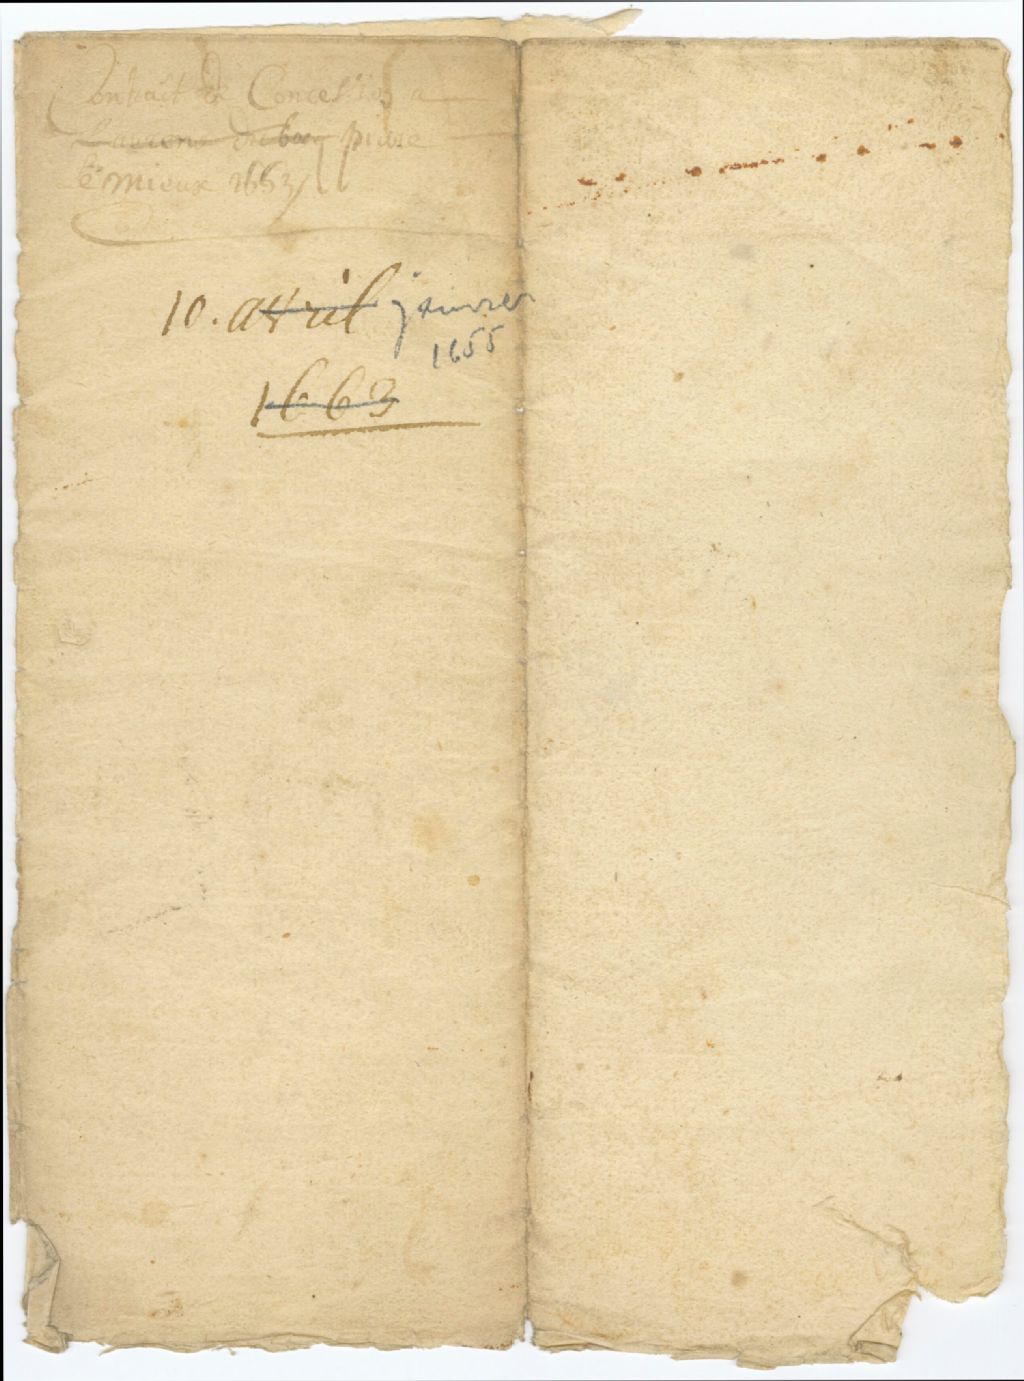 Contract de Concession a
Laurens dubocq pierre
le mieux 1653
10. avril janvier
1655
1663